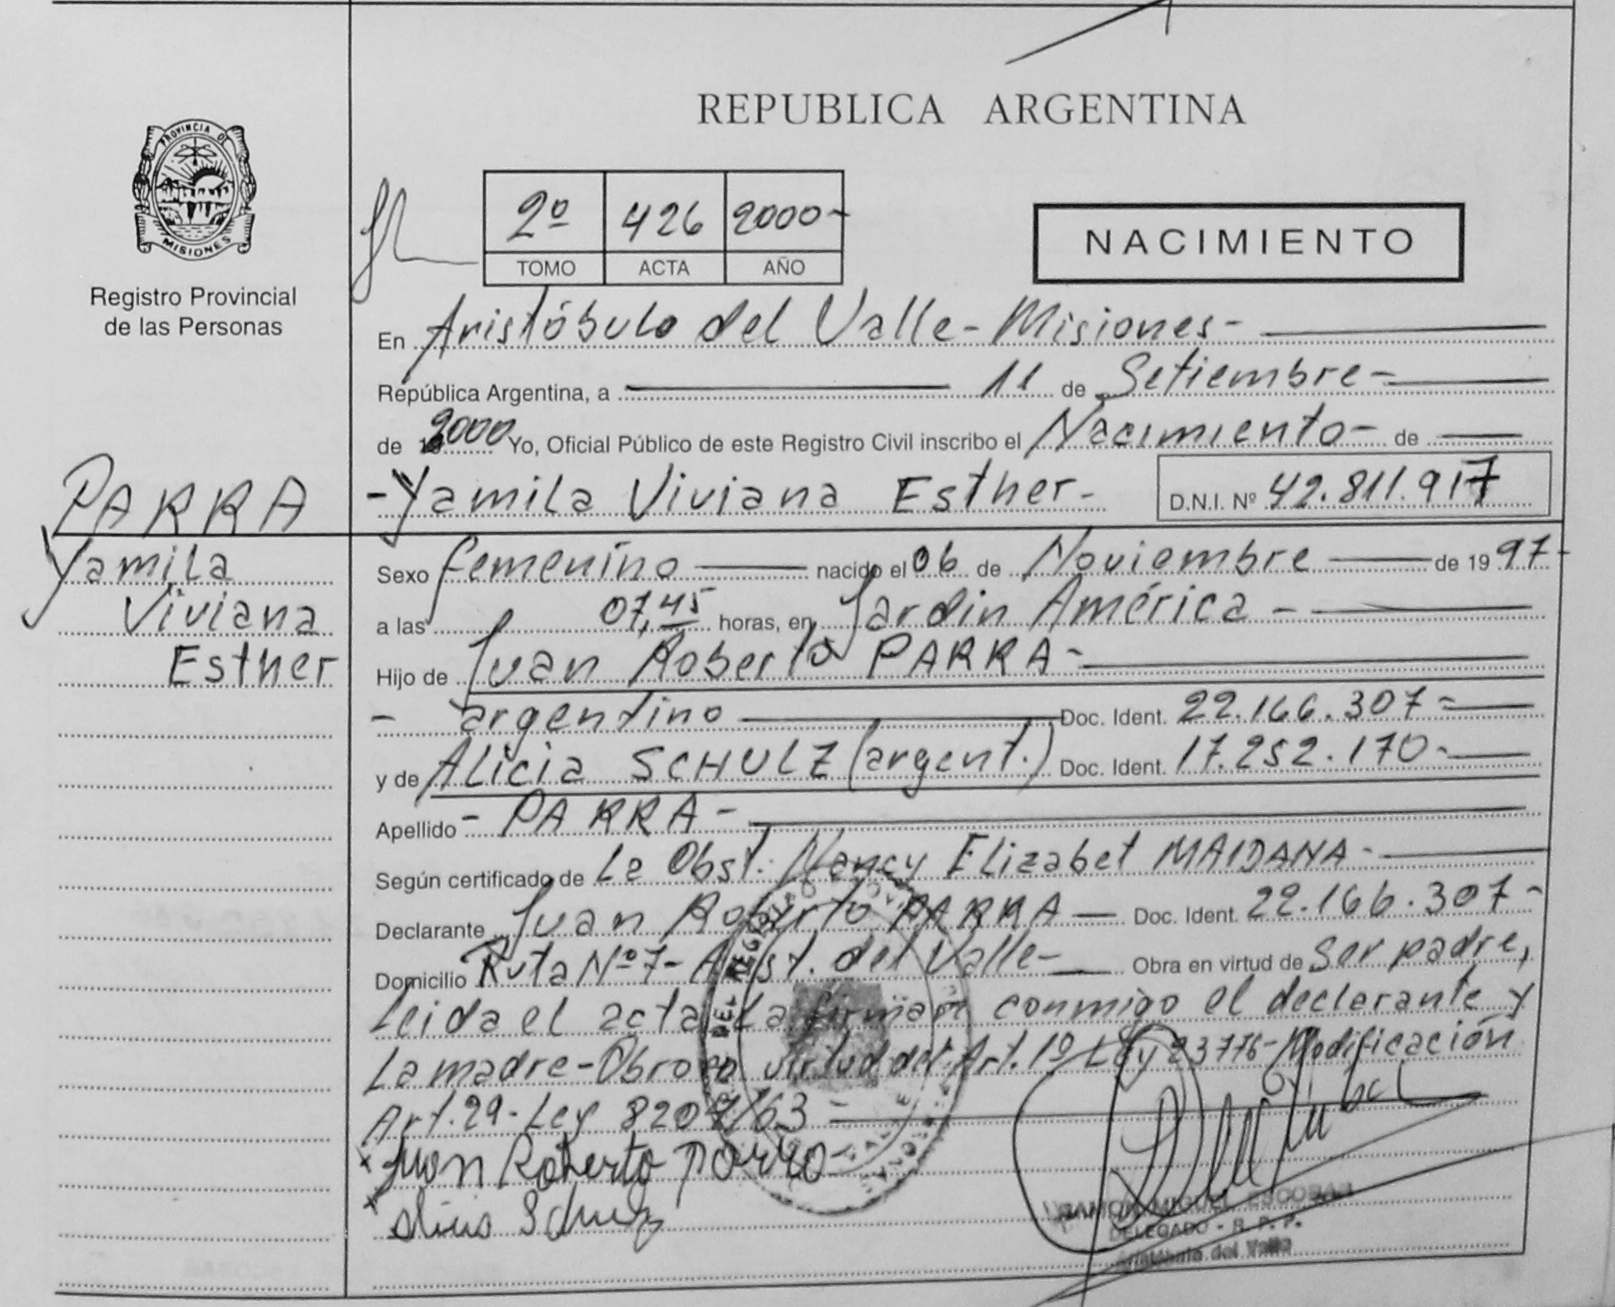 REPUBLICA ARGENTINA
PROVINCIA DE
MISIONES
Registro Provincial
de las Personas
2º 426 2000-
TOMO ACTA AÑO
NACIMIENTO
En Aristóbulo del Valle - Misiones -
República Argentina, a 11 de Setiembre -
de 2000 Yo, Oficial Público de este Registro Civil inscribo el Nacimiento - de
- Yamila Viviana Esther - D.N.I. Nº 42.811.917
PARRA
Yamila
Viviana
Esther
Sexo femenino nacido el 06 de Noviembre de 1997-
a las 07,45 horas, en Jardin América -
Hijo de Juan Roberto PARRA -
- argentino Doc. Ident. 22.166.307 -
y de Alicia SCHULZ (argent.) Doc. Ident. 17.252.170 -
Apellido - PARRA -
Según certificado de La Obst. Nancy Elizabet MAIDANA -
Declarante Juan Roberto PARRA Doc. Ident. 22.166.307 -
Domicilio Ruta Nº 7 - Arist. del Valle - Obra en virtud de Ser padre,
Leida el acta La firman conmigo el declarante y
La madre - Obro en virtud del Art. 1º Ley 23776 - Modificación
Art. 29 - Ley 8204/63 -
x Juan Roberto Parra -
x Alicia Schulz
RAMON MIGUEL ESCOBAR
DELEGADO - R. P. P.
Aristóbulo del Valle